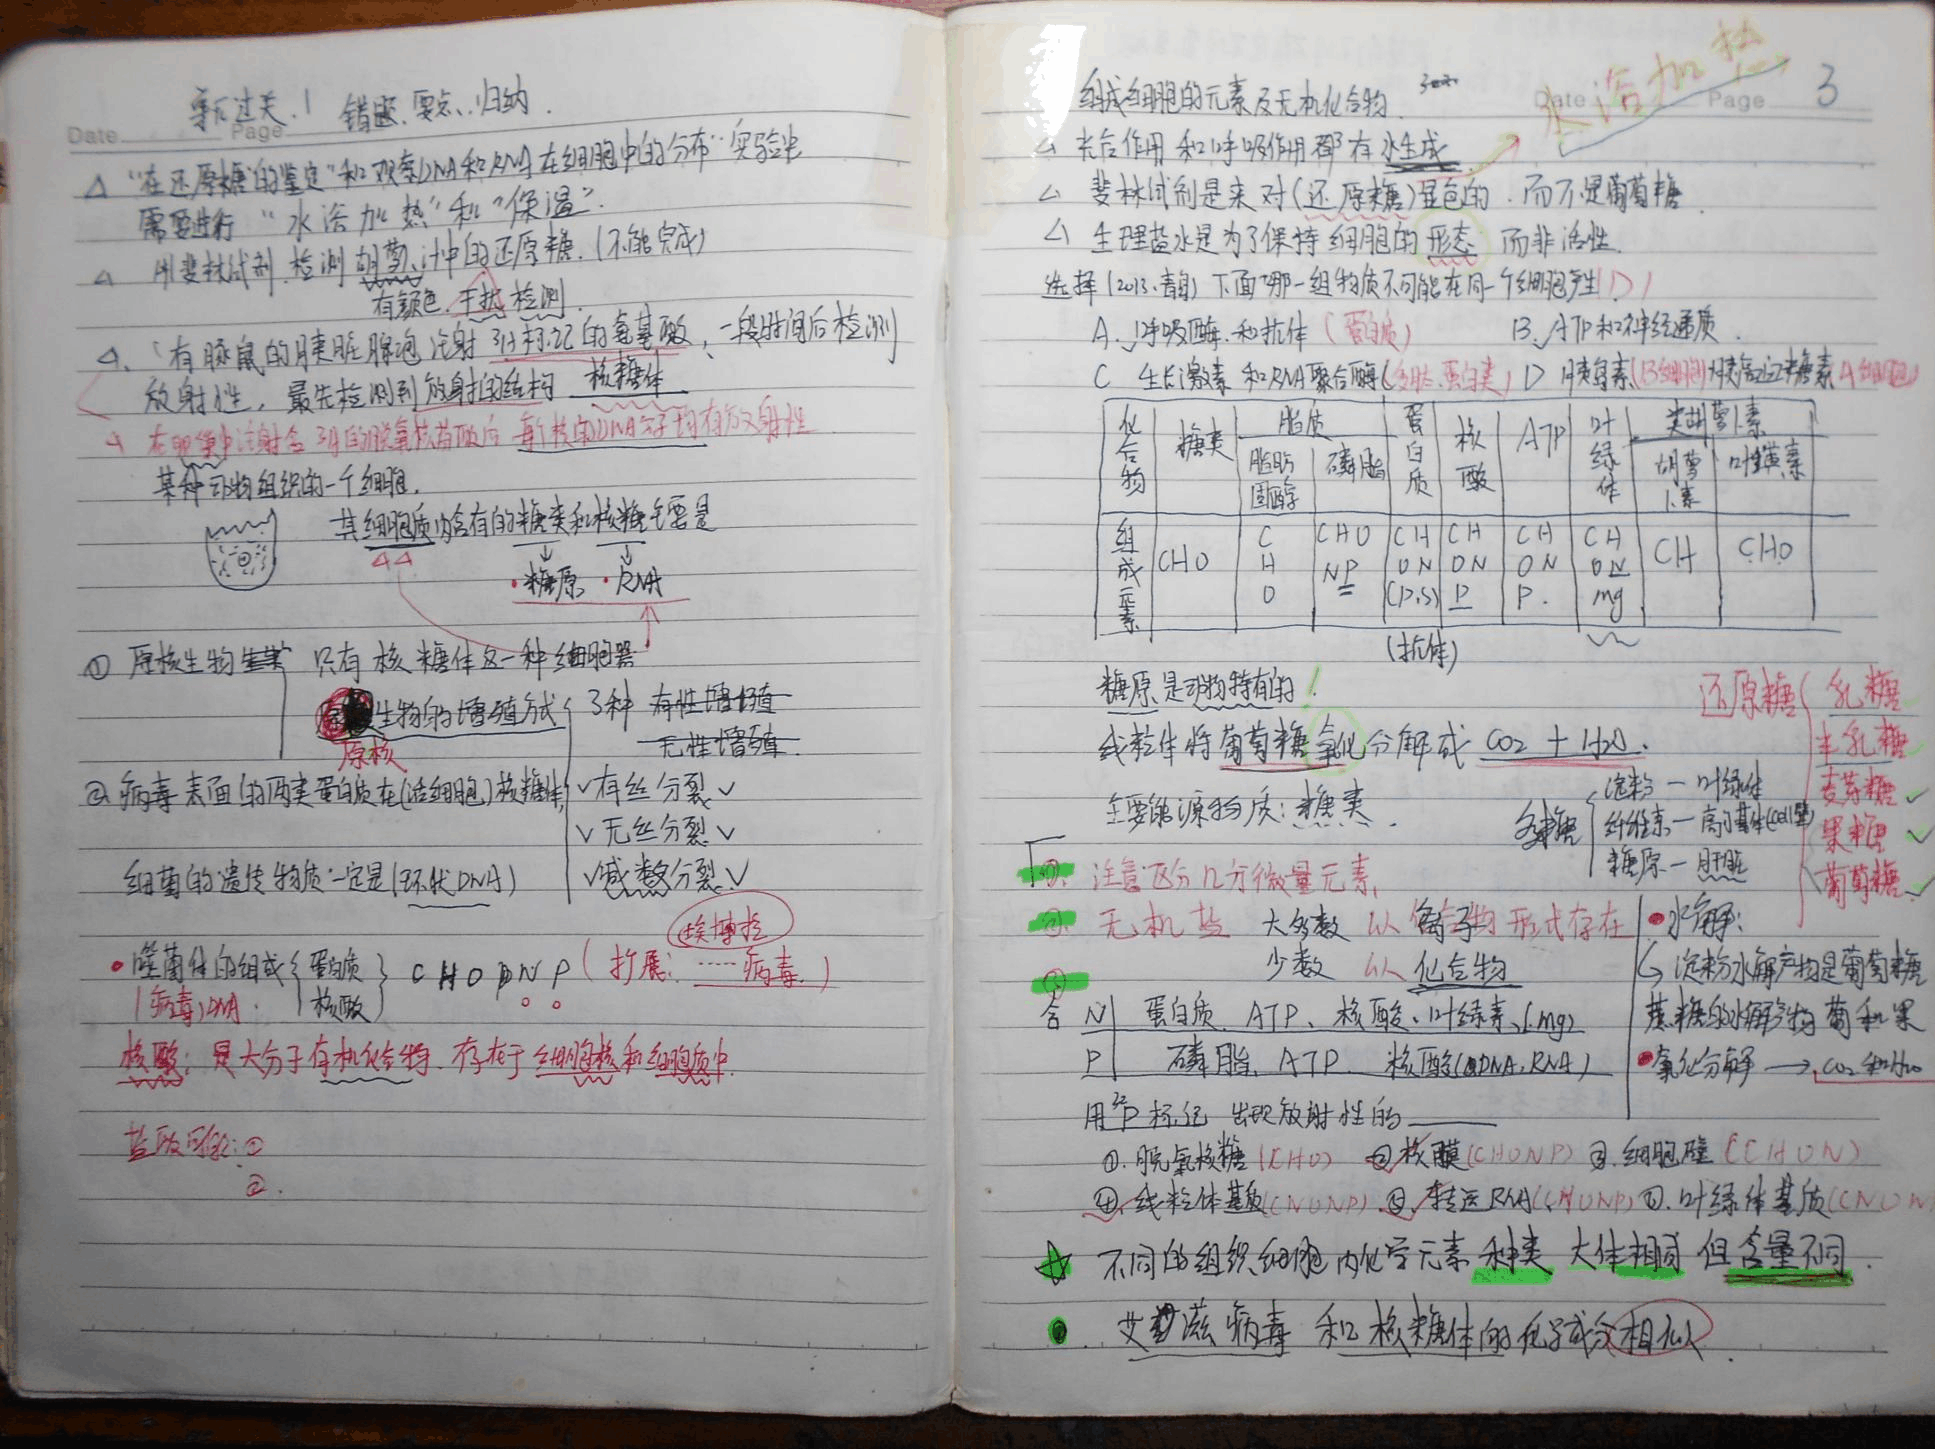 过关.1 错题.要点.归纳.
Date Page
△ "在还原糖的鉴定"和观察DNA和RNA在细胞中的分布"实验中
需要进行 "水浴加热"和"保温".
△ 用斐林试剂.检测胡萝卜汁中的还原糖.(不能完成)
有颜色.干扰检测.
△.有豚鼠的胰脏腺泡注射3H标记的氨基酸,一段时间后检测
放射性,最先检测到放射的结构 核糖体
△ 在卵巢中注射含3H的脱氧核苷酸后 每个核的DNA分子均有放射性
某种动物组织的一个细胞.
其细胞质内含有的糖类和核糖主要是
△△
·糖原 ·RNA
① 原核生物 只有核糖体这一种细胞器
生物的增殖方式 3种 有性增殖
原核 无性增殖
② 病毒表面的两类蛋白质在(活细胞)核糖体 √有丝分裂√
√无丝分裂√
细菌的遗传物质一定是(环状DNA) √减数分裂√
埃博拉
·噬菌体的组成 蛋白质 核酸 C H O N P (扩展:……病毒.)
(病毒)DNA.
核酸:是大分子有机化合物.存在于细胞核和细胞质中.
①
②.
组成细胞的元素及无机化合物.
水浴加热
Date Page 3
△ 光合作用和呼吸作用都有水生成
△ 斐林试剂是来对(还原糖)显色的.而不是葡萄糖
△ 生理盐水是为了保持细胞的形态 而非活性.
选择(2013.青岛)下面哪一组物质不可能在同一个细胞产生(D)
A.√呼吸酶.和抗体(蛋白质) B.√ATP和神经递质.
C 生长激素和RNA聚合酶(多肽.蛋白类) D 胰岛素(B细胞)胰高血糖素(A细胞)
化合物 糖类 脂质 蛋白质 核酸 ATP 叶绿体 类胡萝卜素
脂肪 固醇 磷脂 胡萝卜素 叶黄素
组成元素 CHO CHO CHONP CHON(P.S) CHONP CHONP. CHONmg CH CHO
(抗体)
糖原是动物特有的!
线粒体将葡萄糖氧化分解成 CO2 + H2O.
还原糖 乳糖 半乳糖 麦芽糖√ 果糖√ 葡萄糖√
主要能源物质:糖类.
多糖 淀粉—叶绿体
纤维素—高尔基体(cell壁)
糖原—肝脏
注意区分几分微量元素.
无机盐 大多数 以离子的形式存在
少数 以 化合物
·水解:
淀粉水解产物是葡萄糖
蔗糖的水解产物葡和果
·氧化分解→CO2和H2O
含 N 蛋白质 ATP、核酸、叶绿素.(.mg)
P 磷脂 ATP 核酸(DNA.RNA)
用32P标记 出现放射性的
①.脱氧核糖(CHO) ②核膜(CHONP) ③.细胞壁(CHON)
④.线粒体基质(CNONP).⑤.转运RNA(CHONP) 叶绿体基质(CNON
☆ 不同的组织细胞内化学元素种类 大体相同 但含量不同.
艾滋病毒 和核糖体的化学成分相似.